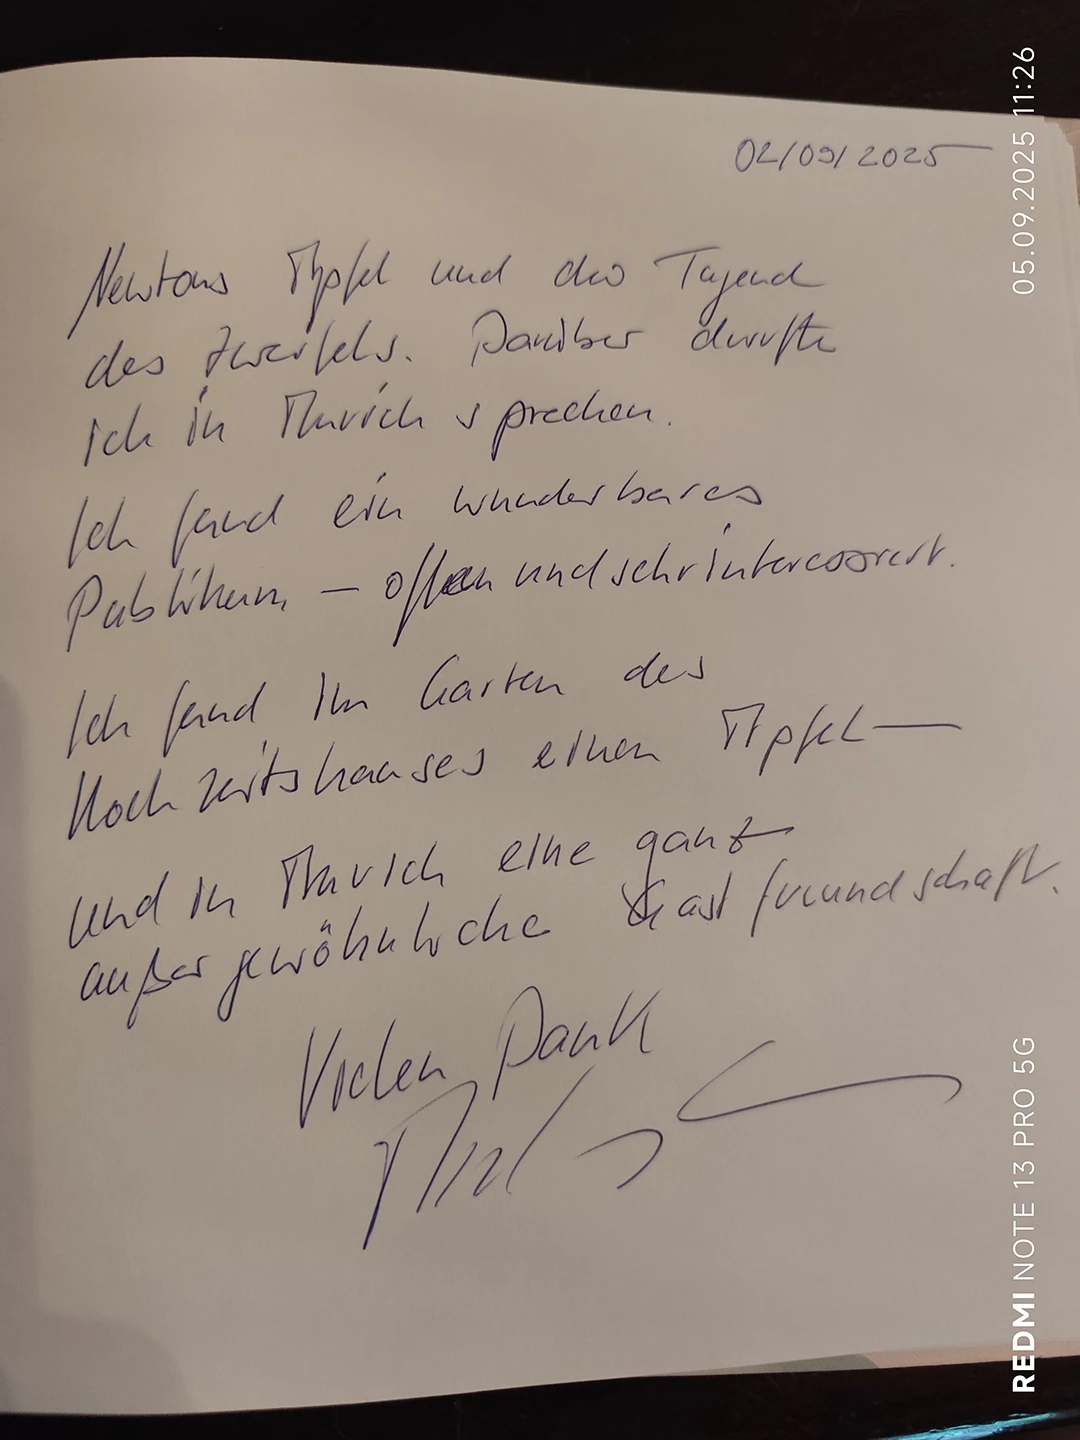 02/09/2025
Newtons Apfel und die Tugend
des Zweifels. Darüber durfte
ich in Aurich sprechen.
Ich fand ein wunderbares
Publikum – offen und sehr interessiert.
Ich fand im Garten des
Hochzeitshauses einen Apfel –
und in Aurich eine ganz
außergewöhnliche Gastfreundschaft.
Vielen Dank
05.09.2025 11:26
REDMI NOTE 13 PRO 5G